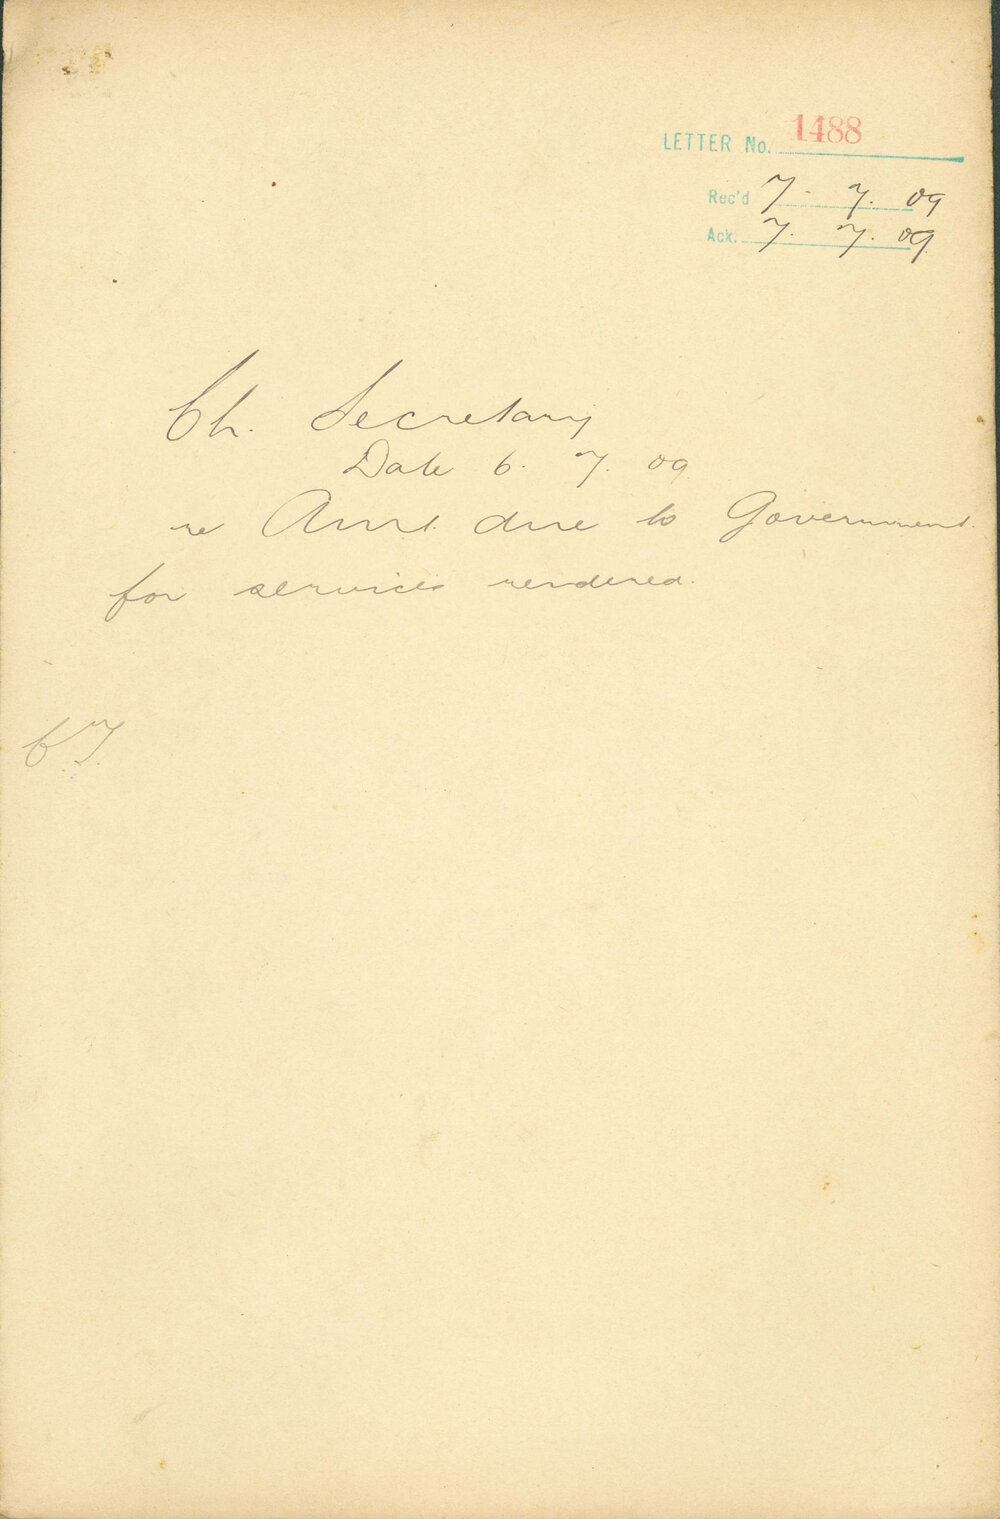 LETTER No. 1488
Rec'd 7. 7. 09
Ack. 7. 7. 09
Ch. Secretary
Date 6. 7. 09
re Amt. due to Government
for services rendered.